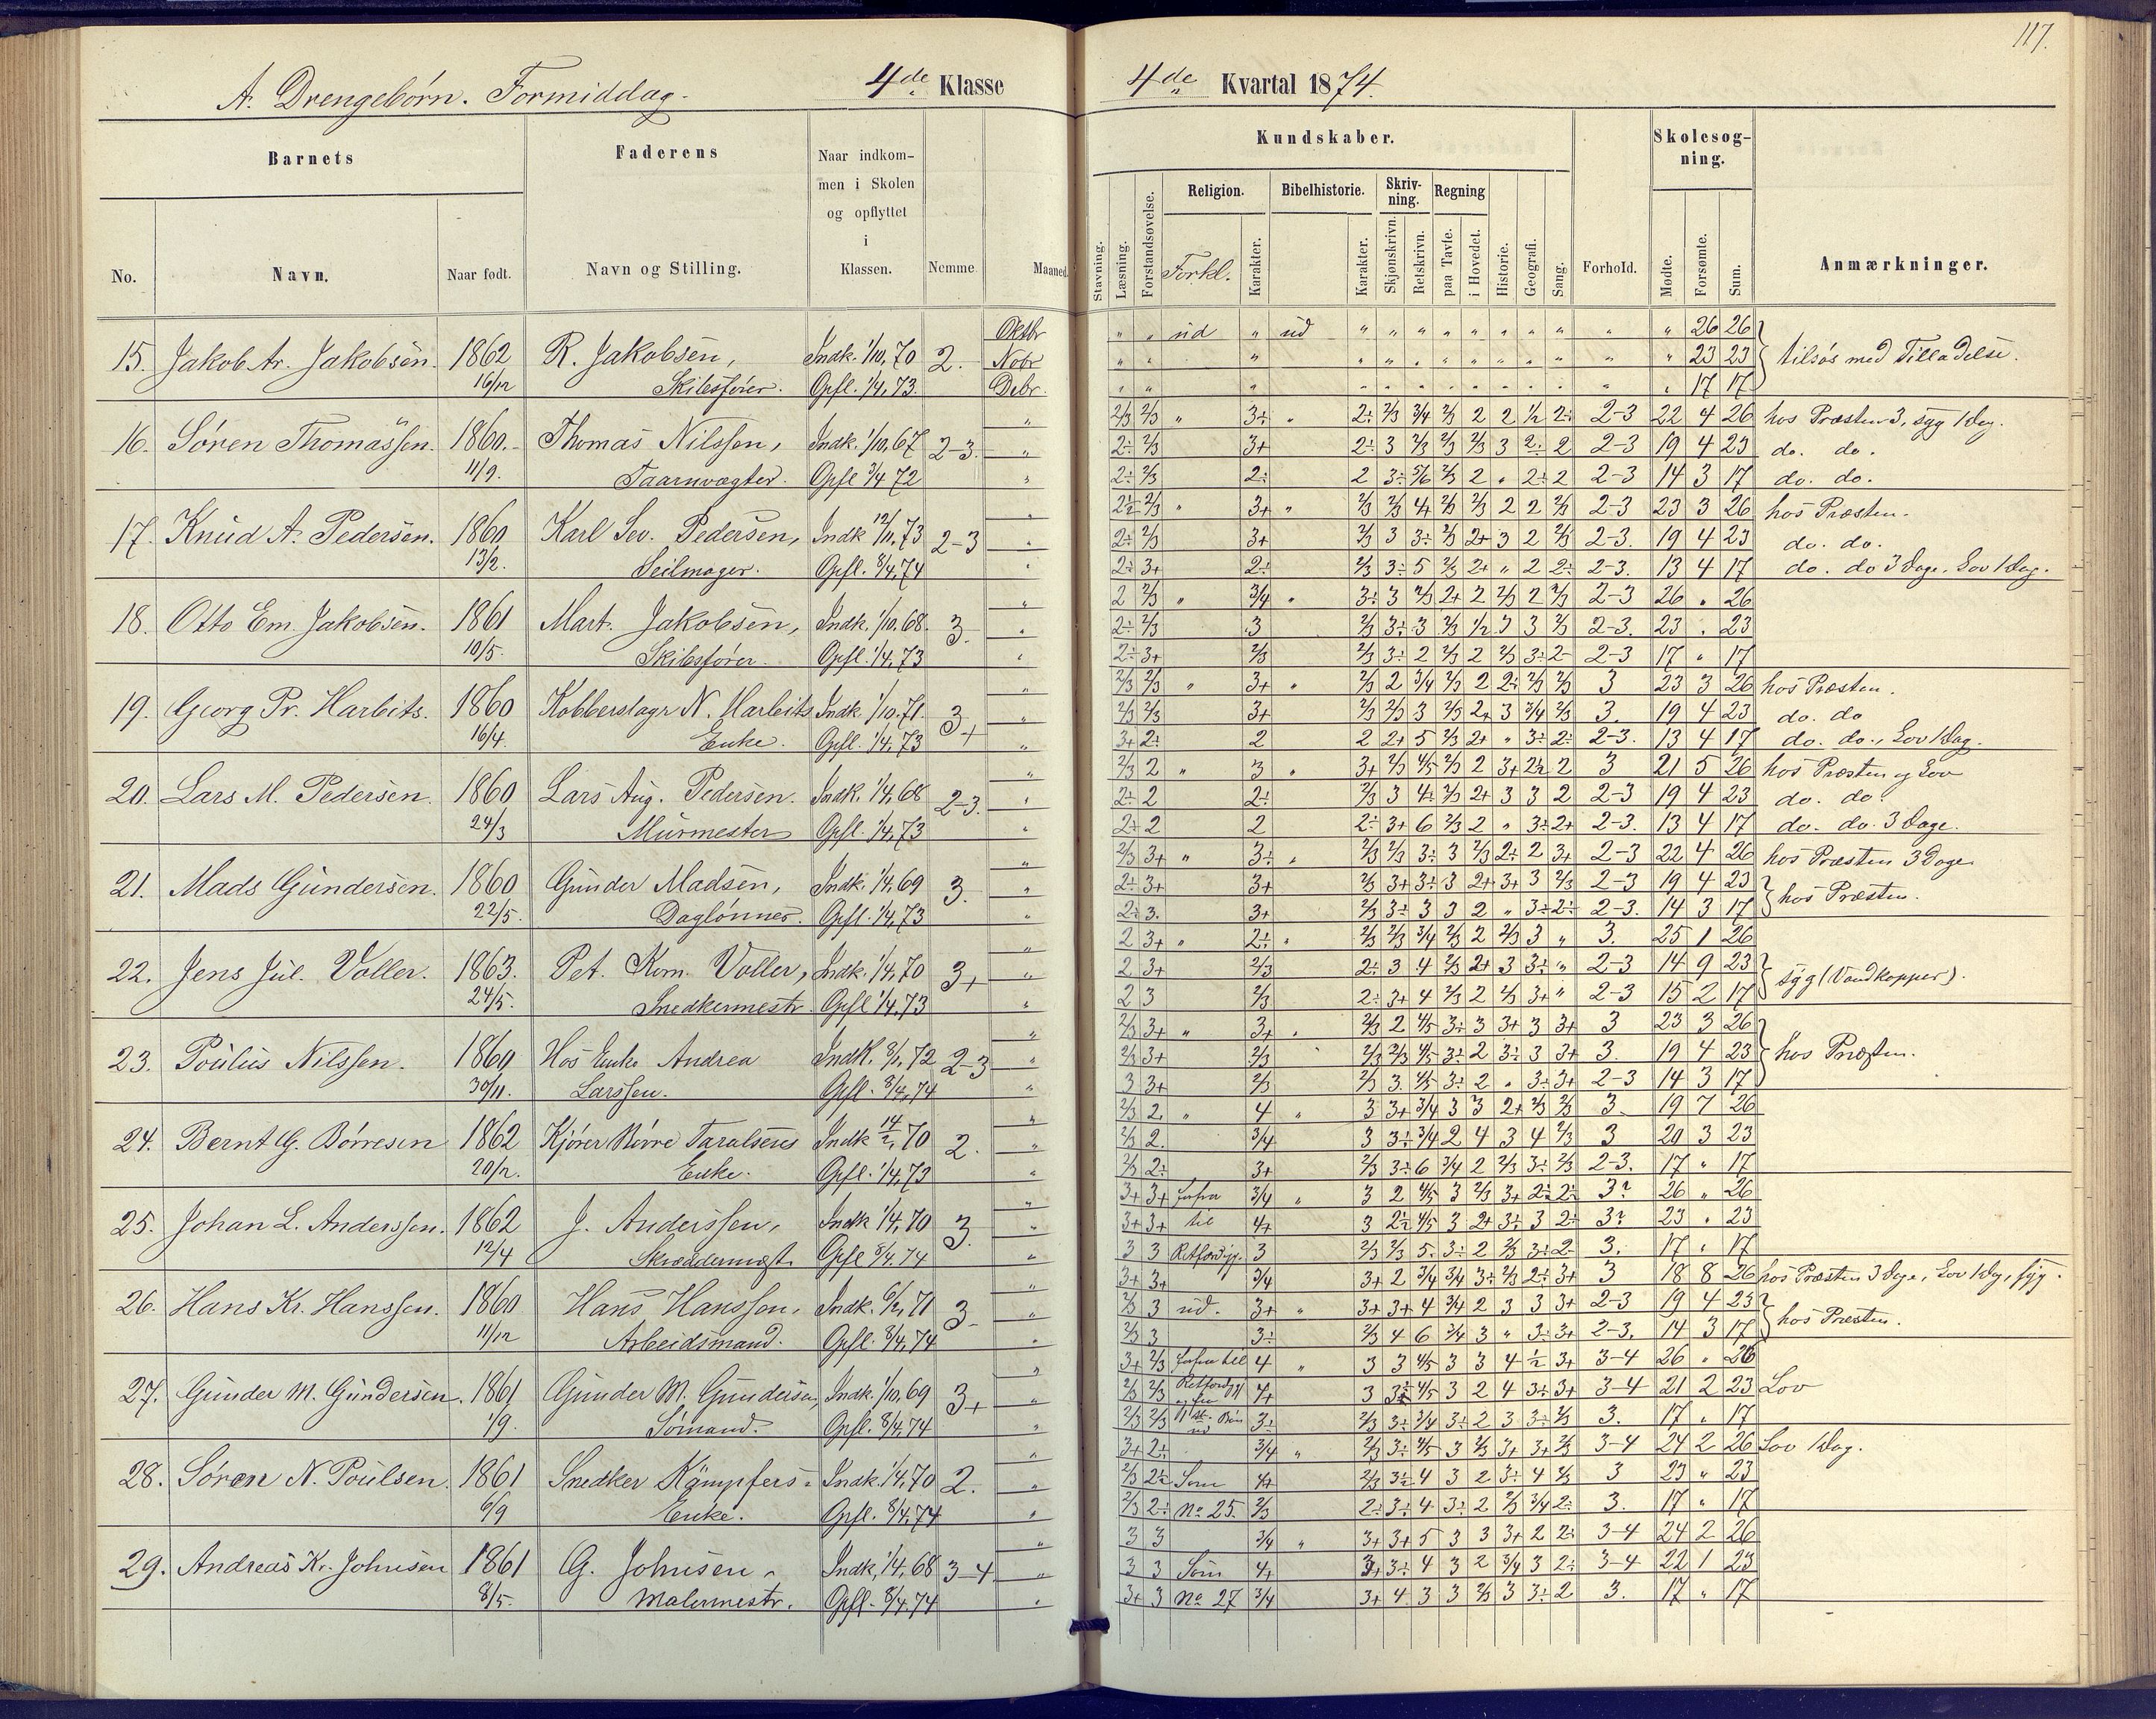 117.
A. Drengebørn. Formiddag. 4de Klasse
4de Kvartal 1874.
Barnets
Faderens
Naar indkom-
men i Skolen
og opflyttet
i
Klassen.
No.
Navn.
Naar født.
Navn og Stilling.
Nemme.
Maaned.
Kundskaber.
Skolesøg-
ning.
Religion.
Bibelhistorie.
Skriv-
ning.
Regning
Stavning.
Læsning.
Forstandsøvelse.
Forkl.
Karakter.
Karakter.
Skjønskrivn.
Retskrivn.
paa Tavle.
i Hovedet.
Historie.
Geografi.
Sang.
Forhold.
Mødte.
Forsømte.
Sum.
Anmærkninger.
15. Jakob Ar. Jakobsen. 1862 R. Jakobsen, Indk. 1/10, 70 2. Oktbr " " ud " ud " " " " " " " " " " 26 26
Nobr 23 23 tilsøs med Tilladelse.
16/12 Skibsfører. Opfl. 1/4, 73. Debr. 17 17
16. Sören Thomassen. 1860. Thomas Nilssen, Indk. 1/10, 67 2-3 2/3 2/3 " 3+ " 2÷ 2/3 3/4 2/3 2 2 1/2 2÷ 2-3 22 4 26 hos Præsten 3, syg 1 Dag.
2÷ 2/3 3+ 2÷ 3 2/3 2/3 2/3 3 2÷ 2 2-3 19 4 23 do. do.
11/9. Taarnvægter. Opfl. 3/4 72 2÷ 2/3 2÷ 2 3÷ 5/6 2/3 2 " 2÷ 2 2-3 14 3 17 do. do.
17. Knud A. Pedersen. 1860 Karl Sev. Pedersen, Indk 12/11, 73 2-3 2/3 " 3+ " 2-3 23 3 26 hos Præsten.
2÷ 2/3 3+ 2/3 3 3÷ 2/3 2+ 3 2 2/3 2-3. 19 4 23 do. do.
13/2. Seilmager. Opfl. 8/4, 74 2÷ 3+ 2÷ 2/3 3÷ 5 2/3 2+ " 2 2÷ 2-3. 13 4 17 do. do 3 Dage, Lov 1 Dag.
18. Otto Em. Jakobsen. 1861 Mart. Jakobsen, Indk. 1/10, 68. 3. 2 2/3 " 3/4 " 3÷ 3 2/3 2+ 2 2/3 2 2/3 2-3 26 " 26
2÷ 2/3 3 2/3 3÷ 3 2/3 1/2 3 3 2/3 2-3. 23 " 23
10/5. Skibsfører. Opfl. 1/4, 73 2÷ 3+ 2/3 2/3 3÷ 2 2/3 2 2/3 3÷ 2- 2-3 17 " 17
19. Georg Pr. Harbits. 1860 Kobberslagr N. Harbits Indk 1/10, 71. 3+ 2/3 2/3 " 3+ " 2/3 2 3/4 2/3 2 2÷ 2/3 2/3 3 23 3 26 hos Præsten.
2/3 2/3 3+ 2/3 2/3 3 2/3 2+ 3 3/4 2/3 3. 19 4 23 do. do
16/4. Enke. Opfl. 1/4, 73 3+ 2÷ 2 2 2+ 5 2/3 2+ " 3÷ 2÷ 2-3. 13 4 17 do. do., Lov 1 Dag.
20. Lars M. Pedersen. 1860 Lars Aug. Pedersen. Indk. 1/4, 68 2-3. 2/3 2 " 3 " 3+ 2/3 4/5 2/3 2 3+ 2½ 2 3 21 5 26 hos Præsten og Lov
2÷ 2 2÷ 2/3 3 4÷ 2/3 2+ 3 3 2 2-3 19 4 23 do. do.
24/3 Murmester Opfl. 1/4, 73 2÷ 2 2 2÷ 3+ 6 2/3 2 " 3÷ 2+ 2-3. 13 4 17 do. do. 3 Dage.
21. Mads Gundersen. 1860 Gunder Madsen, Indk. 1/4, 69 3. 2/3 3+ " 3÷ " 2/3 2/3 3÷ 3 2/3 2÷ 2 3+ 2-3 22 4 26 hos Præsten 3 Dage
2÷ 3+ 3+ 2/3 3+ 3÷ 3 2+ 3+ 3 2/3 2-3 19 4 23
22/5. Daglønner. Opfl. 1/4, 73 2÷ 3. 3+ 2/3 3÷ 3 3 2 " 3÷ 2÷ 2-3. 14 3 17 hos Præsten.
22. Jens Jul. Voller. 1863. Pet. Kom. Voller, Indk. 1/4, 70 3+ 2 3+ " 2÷ " 2/3 2/3 3/4 2/3 2 2/3 3 " 3. 25 1 26
2 3+ 2/3 2÷ 3 4 2/3 2+ 3 3÷ " 2-3 14 9 23 syg (Vandkopper).
24/5. Snedkermestr. Opfl 1/4, 73 2 3 2/3 2÷ 3+ 4 2/3 2 2/3 3+ " 2-3 15 2 17
23. Poulus Nilssen. 1860 Hos Enke Andrea Indk. 8/1, 72 2-3 2/3 3+ " 3+ " 2/3 2 4/5 3÷ 3 3+ 3 3+ 3 23 3 26
2/3 3+ 2/3 2/3 2/3 4/5 3÷ 2 3÷ 3 3+ 3. 19 4 23 hos Præsten.
30/11. Larssen. Opfl. 8/4, 74 3 3+ 2/3 2/3 3. 4/5 3÷ 2 " 3÷ 3+ 2-3 14 3 17
24. Bernt G. Börresen 1862 Kjører Börre Taralsens Indk 14/2, 70 2. 2/3 2. " 4 " 3 3+ 3/4 3 3 2+ 2/3 2/3 3. 19 7 26
2/3 2. 3/4 3 3÷ 3/4 2 4 3 4 2/3 3 20 3 23
20/2. Enke. Opfl. 1/4, 73 2/3 2÷ 3+ 2/3 3÷ 6 3/4 2 2/3 3÷ 2/3 2-3. 17 " 17
25. Johan L. Anderssen. 1862 J. Anderssen, Indk 1/4, 70 3. 3+ 3+ 3/4 " 3 2 4/5 3 2/3 3+ 2÷ 2÷ 3? 26 " 26
3+ 3+ til 4+ 3 2½ 4/5 3 2+ 3÷ 3 2÷ 3? 23 " 23
12/4 Skræddermest. Opfl 8/4, 74 3 3 Retfærdigg. 3 2/3 2/3 5. 3÷ 2 2/3 3÷ 2- 3. 17 " 17
26. Hans Kr. Hanssen. 1860 Hans Hanssen, Indk. 6/2, 71 3- 3+ 3+ 3/4 3+ 2 3/4 3/4 3÷ 2/3 2÷ 3+ 3 18 8 26 hos Præsten 3 Dage, Lov 1 Dag, syg.
2/3 3 ud. 3+ " 3+ 3+ 4 3/4 2 3 3 3+ 2-3 19 4 23
11/12 Arbeidsmand. Opfl. 8/4, 74 2/3 3 3÷ 2/3 4 6 3/4 3 " 3÷ 3+ 2-3. 14 3 17 hos Præsten.
27. Gunder M. Gundersen. 1861 Gunder M. Gundersen, Indk. 1/10, 69 3+ 3+ 2/3 til 4 " 3 3 4/5 3 3 4 1/2 3+ 3-4 26 " 26
2/3 2/3 Retfærdigg 4+ 3 3÷ 4/5 3 2 4 3÷ 3+ 3-4 21 2 23 Lov
1/9. Sømand. Opfl. 8/4, 74 2/3 2/3 ud 3÷ 2/3 3÷ 3/4 3÷ 2 3 3÷ 2/3 3. 17 " 17
28. Sören N. Poulsen. 1861 Snedker Kämpfers Indk. 1/4, 70 2. 3+ 2÷ 3/4 " 2/3 3÷ 4/5 3 2/3 3+ 3+ 2/3 3-4 24 2 26 Lov 1 Dag.
2/3 2½ Som 4+ 2/3 3½ 4 3 2 3÷ 4 2/3 3 23 " 23
6/9 Enke. Opfl. 8/4, 74 2/3 2÷ No 25. 2/3 2÷ 3÷ 4 3÷ 2 2/3 3/4 2÷ 3. 17 " 17
29. Andreas Kr. Johnsen 1861 G. Johnsen Indk, 1/4, 68 3-4 3 3 3/4 " 3+ 3+ 5 3 3 3+ 2 2÷ 3-4 24 2 26
3 3 Som 4+ 3+ 3÷ 4 3 2 3/4 3 2÷ 3-4 22 1 23
8/5. Malermestr. Opfl. 8/4, 74 3+ 3 No 27 3/4 3+ 4 3 3 2/3 3 3÷ 2 3. 17 " 17